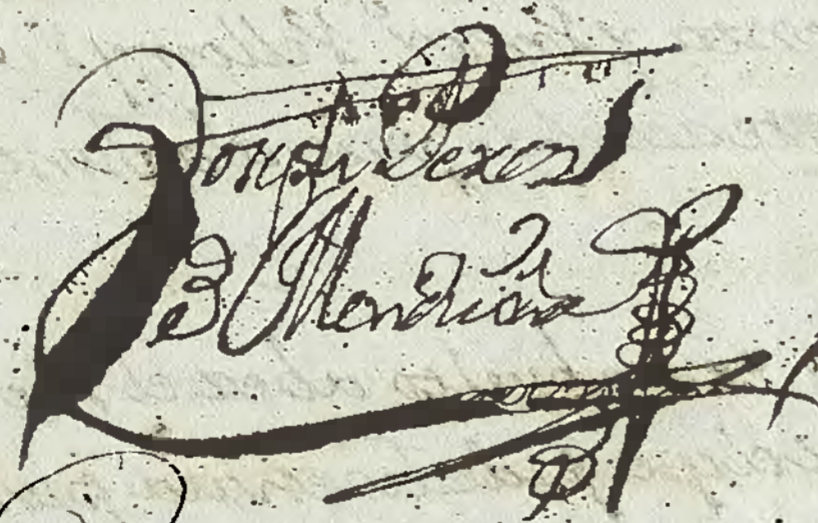 Joseph Perez
de Mendiola